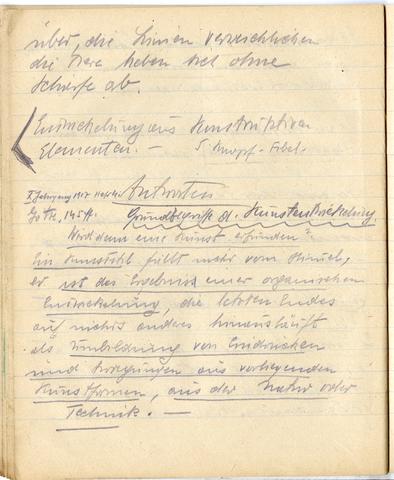 über, die Linien verzeichlichen
die Tiere heben sich ohne
Schärfe ab.
Entwickelung aus Konstruktiven
Elementen. — S. Knopf-Fibel.
Antworten
X. Jahrgang 1917
145 ff. Grundbegriffe d. Kunstentwickelung
Wird denn eine Kunst erfunden?
Ein Kunststil fällt nie vom Himmel,
er ist das Ergebnis einer organischen
Entwickelung, die letzten Endes
auf nichts anderes hinausläuft
als Umbildung von Eindrücken
und Anregungen aus vorliegenden
Kunstformen, aus der Natur oder
Technik. —